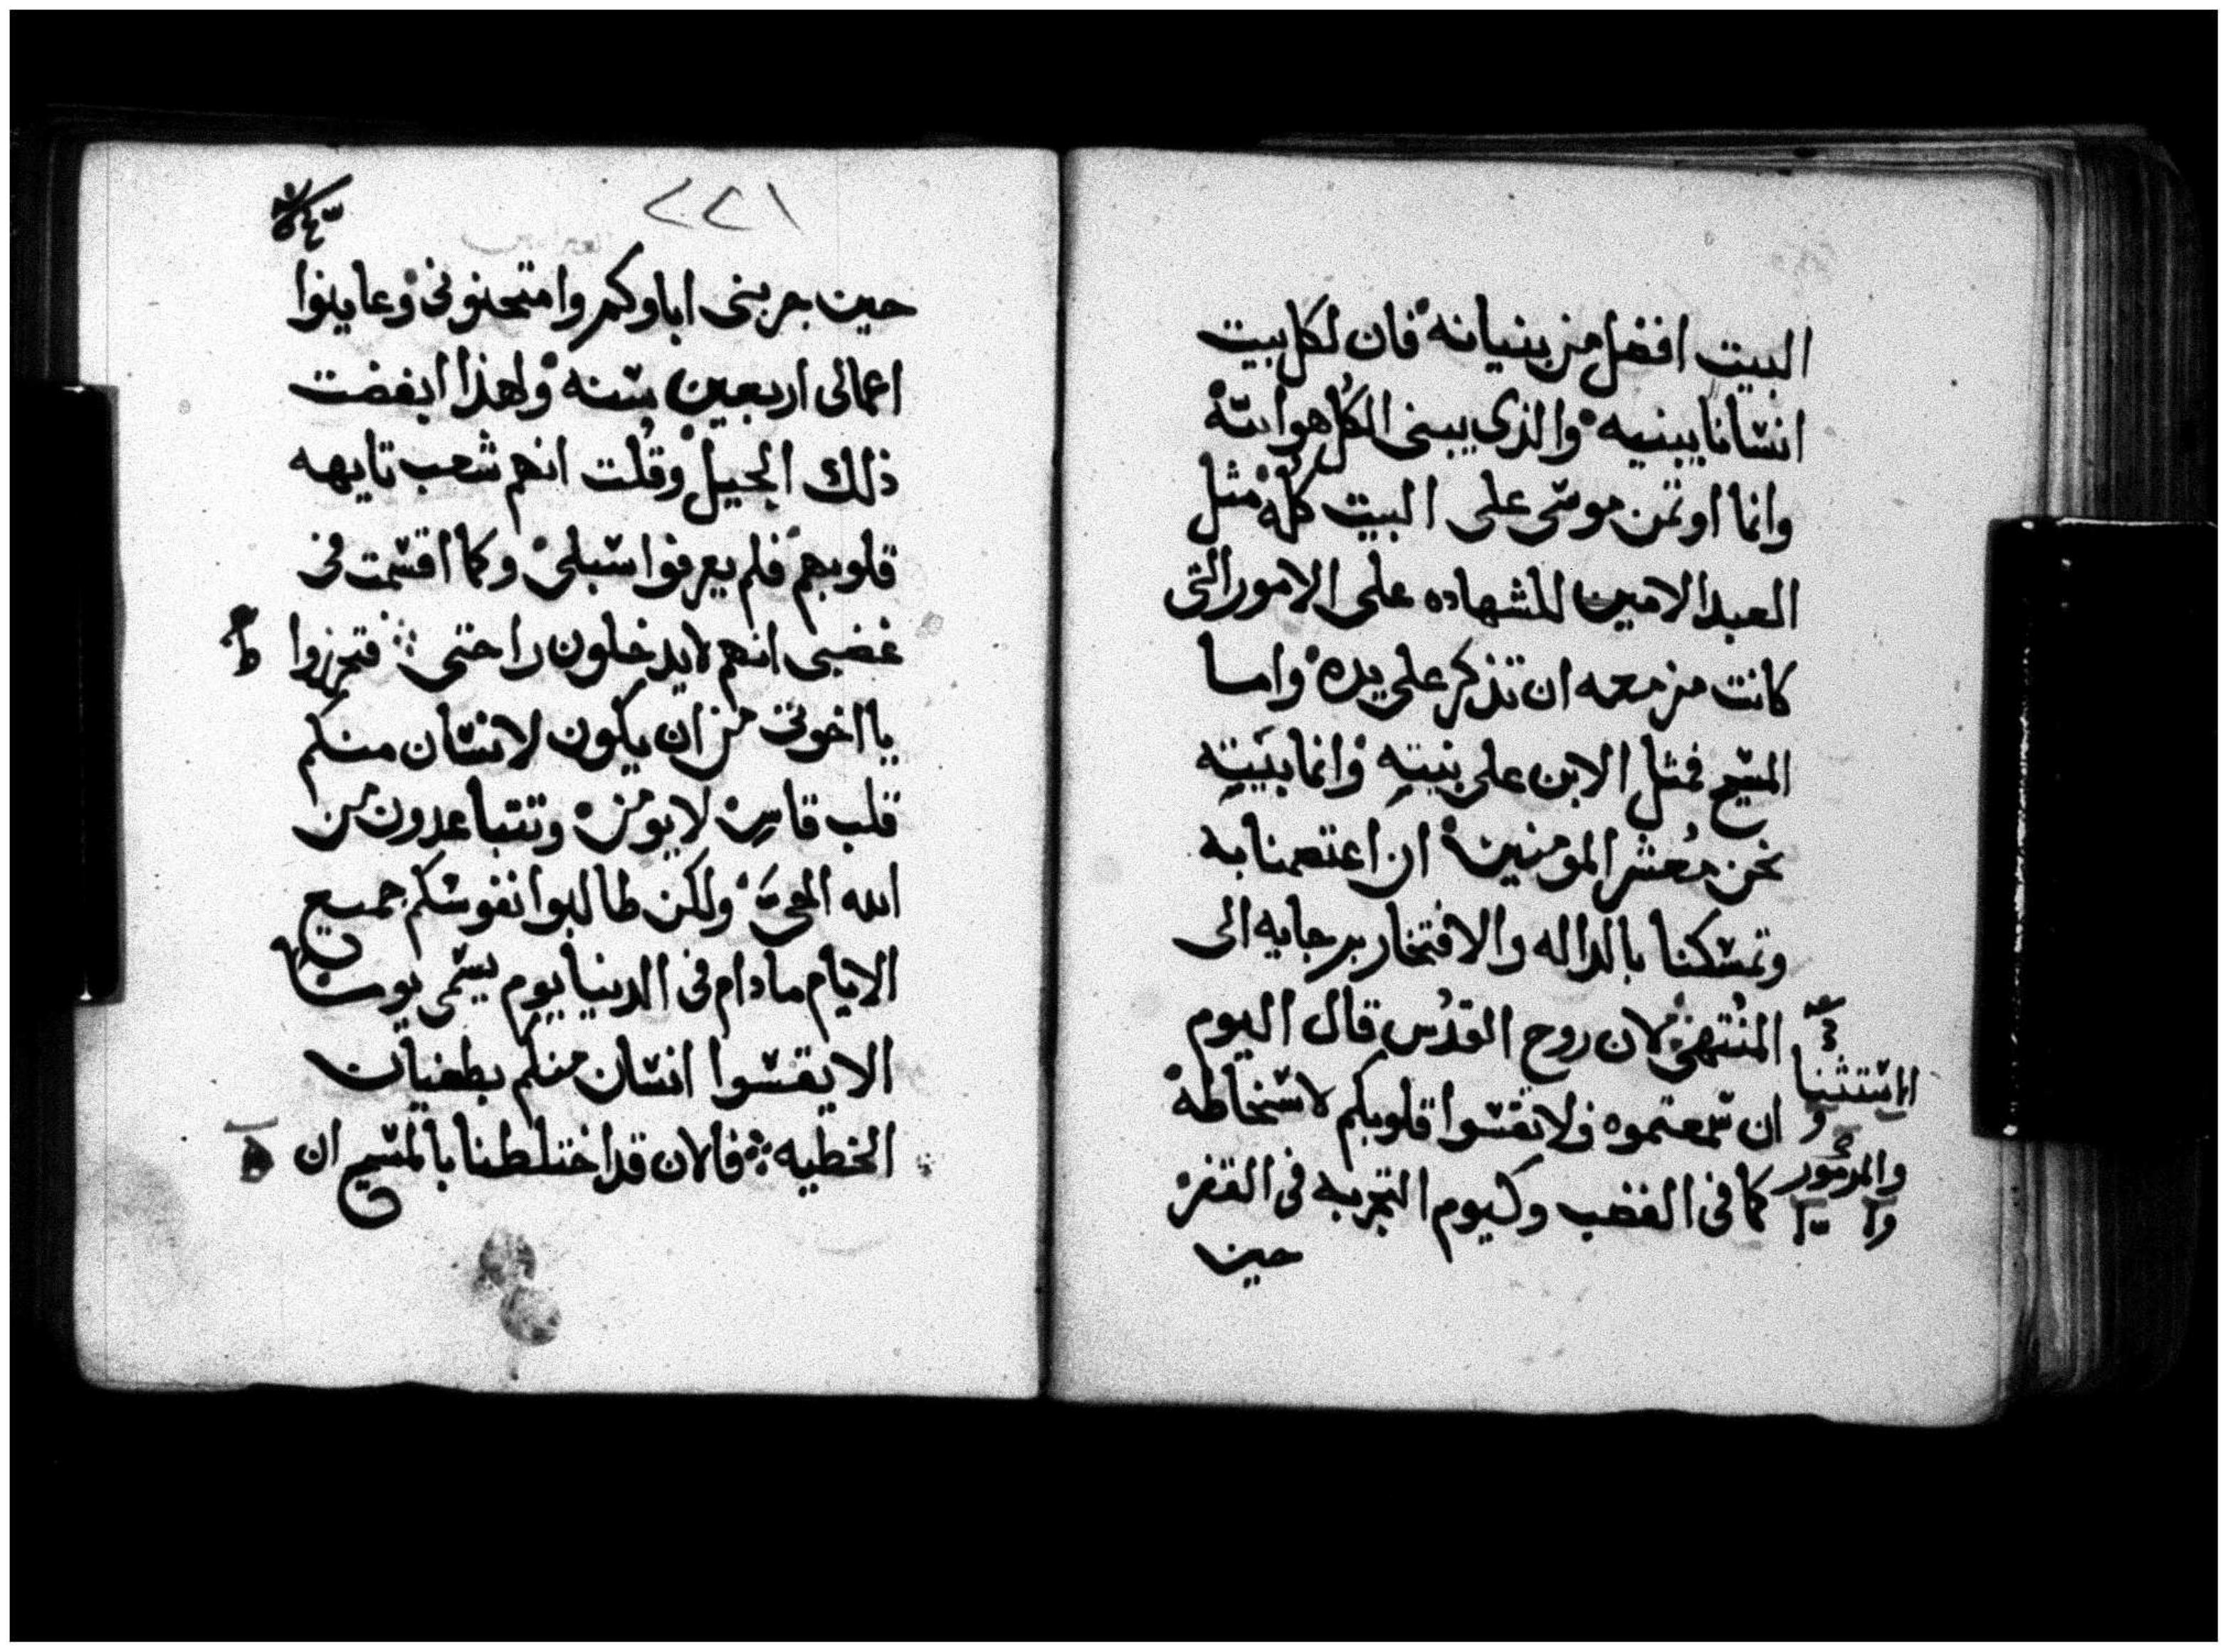 البيت افضل من بنيانه فان لكل بيت
انسانا يبنيه والذي يبني الكل هو الله
وانما اوتمن موسى على البيت كله مثل
العبد الامين للشهاده على الامور التى
كانت مزمعه ان تذكر على يده واما
المسيح فمثل الابن على بيته وانما بيته
نحن معشر المومنين ان اعتصمنا به
وتمسكنا بالداله والافتخار برجايه الى
المنتهى لان روح القدس قال اليوم
ان سمعتموه فلا تقسوا قلوبكم لاسخاطه
كما فى الغضب وكيوم التجربه فى القفر
حين
الاستثنا
والمزمور
٢٢١
حين جربنى اباوكم وامتحنونى وعاينوا
اعمالى اربعين سنه ولهذا ابغضت
ذلك الجيل وقلت انهم شعب تايهه
قلوبهم فلم يعرفوا سبلى وكما اقسمت فى
غضبى انهم لا يدخلون راحتى فتحرزوا
يا اخوتى من ان يكون لانسان منكم
قلب قاس لا يومن وتتباعدون من
الله الحي ولكن طالبوا نفوسكم جميع
الايام ما دام فى الدنيا يوم يسمى يومنا
الا يقسوا انسان منكم بطغيان
الخطيه فالان قد اختلطنا بالمسيح ان